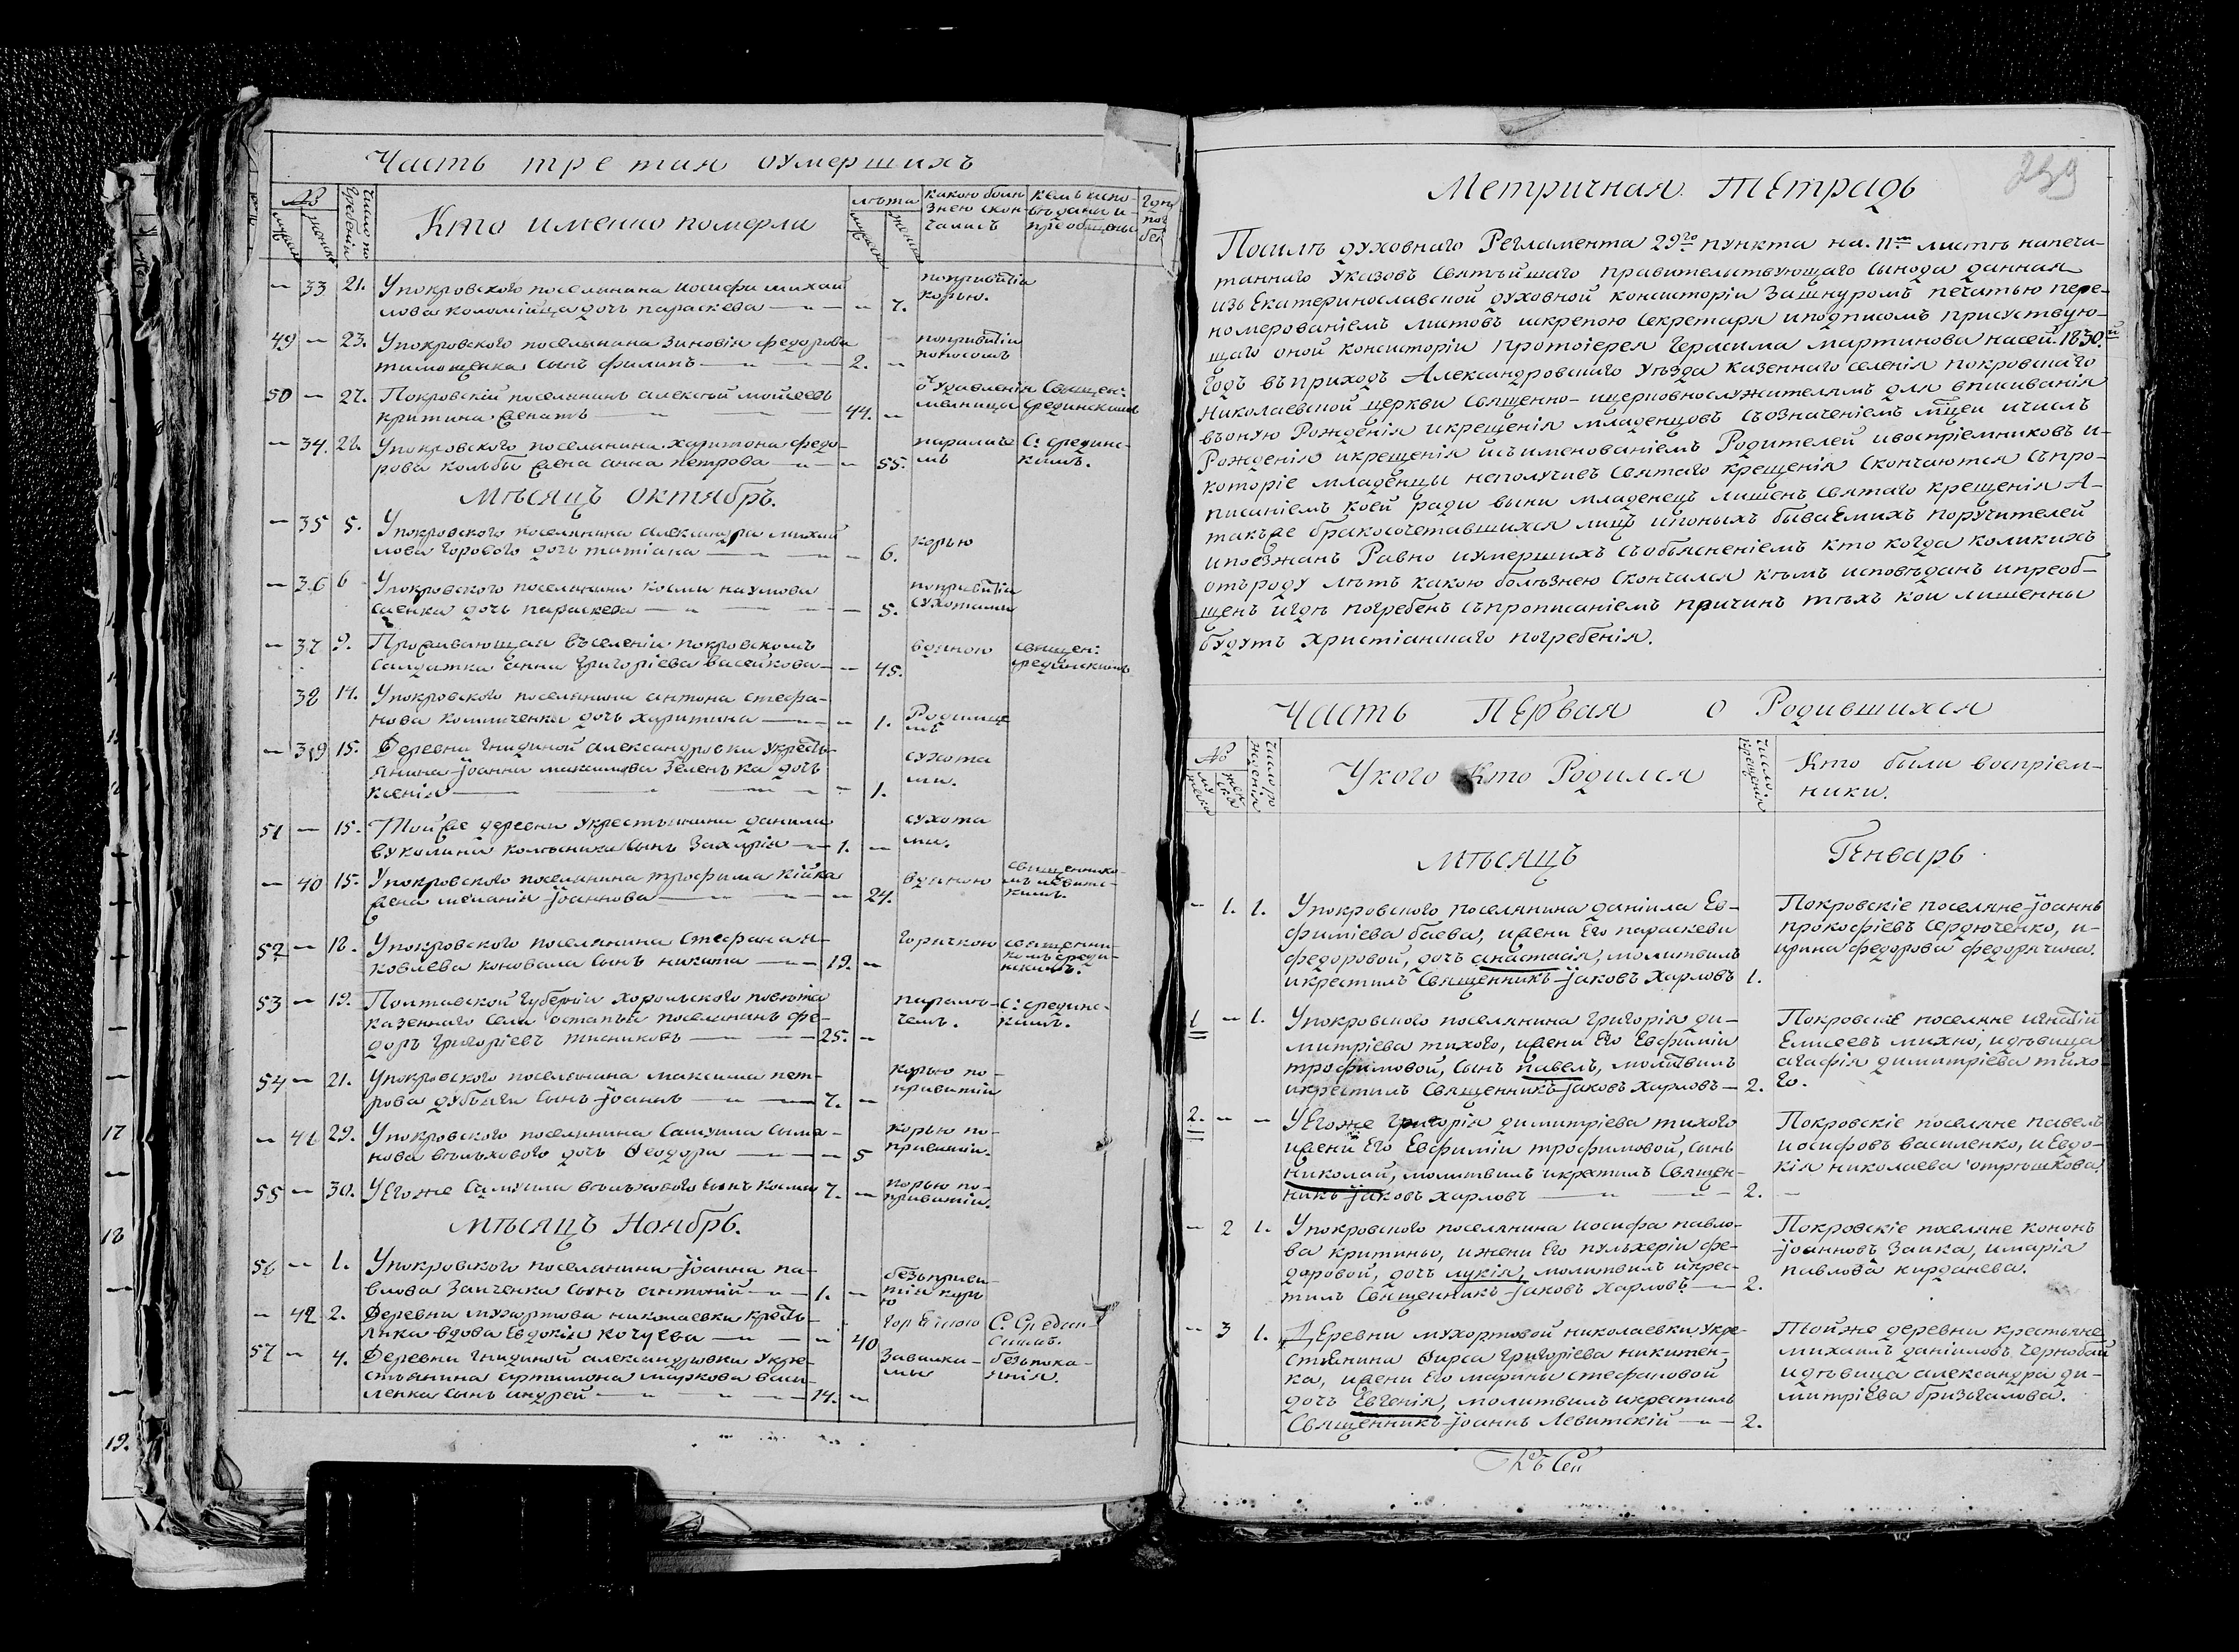 Часть третия оумершихъ
№
Число погребенія
Кто именно померли
лѣта
какою болѣзнею скончались
кемъ исповѣданы и пріобщены
мужеск
женска
— 33 21. Упокровского поселянина иосифа михай
лова коломійца дочь параскева — — 7. попривитіи
корью.
49 — 23. Упокровского поселянина Зиновія федорова
тимощенка сынъ филипъ — 2. — попривитіи
поносомъ
50 — 27. Покровскій поселянинъ алексѣй мойсеевъ
критина женатъ — 44. — ѿ Удавленія мелницы Свящеи: срединскимъ
— 34. 28. Упокровского поселянина харитона федо-
рова кольбы жена анна петрова — — 55. параличемъ С: срединскимъ.
Мѣсяцъ Октябрь.
— 35 5. Упокровского поселянина александра михай
лова горового дочь татіана — — 6. корью
— 36 6 Упокровского поселянина космы наумова
саенка дочь параскева — — 5. попривитіи
сухотами
— 37 9. Проживающая въселеніи покровскомъ
Салдатка анна григоріева васейкова — — 45. водяною свящеи: срединскимъ
38 14. Упокровского поселянина антона стефа-
нова колниченка дочь харитина — — 1. Родимцемъ
— 39 15. Деревни гнидиной александровки укресть-
янина іоанна максимова Зеленька дочь
ксенія — — 1. сухотами.
51 — 15. Тойже деревни укрестьянина данила
вуколина колѣсника сынъ Захарія — 1. — сухотами.
— 40 15. Упокровского поселянина трофима кійка
жена меланія іоаннова — — 24. водяною священникомъ левитскимъ.
52 — 18. Упокровского поселянина Стефана я-
ковлева коновала сынъ никита — 19. — горячкою священникомъ срединскимъ.
53 — 19. Полтавской губерніи хорольского повѣта
казенного села остапья поселянинъ фе-
доръ григоріевъ тисниковъ — 25. — параличемъ. С: срединскимъ.
54 — 21. Упокровского поселянина максима пет-
рова дубяги сынъ іоаннъ — 7. — корью по-
привитіи
— 41 29. Упокровского поселянина Самуила Симо-
нова вѣльхового дочь Ѳеодора — — 5 корью по-
привитіи.
55 — 30. Уегоже Самуила вѣльхового сынъ косма 7. — корью по-
привитіи.
Мѣсяцъ Ноябрь.
56 — 1. Упокровского поселянина іоанна па-
влова Заиченка сынъ антоній — 1. — безъпривитія корью
— 42 2. Деревни мухортова николаевки кресть-
янка вдова Евдокія кочуева — — 40 горячкою С. Срединскимъ.
57 — 4. Деревни гнидиной александровки укре-
стьянина артимона маркова васи-
ленка сынъ андрей — 14. — Завалками безъпокаянія.
17
18
19.
239
Метричная Тетрадь
Посилѣ духовнаго Регламента 29го пункта на 11м листѣ напеча-
таннаго указовъ Святѣйшаго правительствующаго Сынода данная
изъ Екатеринославской духовной консисторіи Зашнуромъ печатью пере-
номерованіемъ листовъ искрепою Секретаря иподписомъ присуствую-
щаго оной консисторіи протоіерея Герасима мартинова насей 1830й
Годъ въприходъ Александровскаго Уезда казеннаго селенія покровскаго
Николаевской церкви Священно-ицерковнослужителямъ для вписыванія
въоную Рожденія икрещенія младенцовъ съозначеніемъ мцеи ичислъ
Рожденія икрещенія исъименованіемъ Родителей ивоспріемниковъ и-
которіе младенцы неполучивъ Святаго крещенія Скончаются Съпро-
писаніемъ коей ради вины младенецъ лишенъ Святаго крещенія А-
такъже бракосочетавшихся лицъ ипоныхъ бываемихъ поручителей
ипоезжанъ Равно иумершихъ Съобъясненіемъ кто когда коликихъ
отъроду лѣтъ какою болѣзнею Скончался кѣмъ исповѣданъ ипреоб-
щенъ игдѣ погребенъ Съпрописаніемъ причинъ тѣхъ кои лишенны
будутъ христіанскаго погребенія.
Часть Первая о Родившихся
№
Число рожденія
Укого Кто Родился
Число крещенія
Кто были воспріем-
ники.
Мѣсяцъ Генварь
— 1. 1. Упокровского поселянина даніила Ев-
фиміева баева, ижени Его параскеви
федоровой, дочь анастасія, молитвилъ
икрестилъ Священникъ Іаковъ Харловъ 1.
Покровскіе поселяне іоаннъ
прокофіевъ Сердюченко, и-
ирина федорова федоричина.
1 — 1. Упокровского поселянина григорія ди-
митріева тихого, ижени Его Евфиміи
трофимовой, сынъ павелъ, молитвилъ
икрестилъ Священникъ Іаковъ Харловъ — 2.
Покровскіе поселяне игнатій
Елисеевъ михно, идѣвица
агафія димитріева тихо-
го.
2. — — Уегоже григорія димитріева тихого
ижени Его Евфиміи трофимовой, сынъ
николай, молитвилъ икрестилъ Священ-
никъ Іаковъ Харловъ — 2.
Покровскіе поселяне павелъ
иосифовъ василенко, и Евдо-
кія николаева отрѣшкова.
— 2 1. Упокровского поселянина иосифа павло-
ва критины, ижени Его пульхеріи фе-
доровой, дочь лукія, молитвилъ икрес-
тилъ Священникъ Іаковъ Харловъ — 2.
Покровскіе поселяне кононъ
іоанновъ Заика, имарія
павлова кирданева.
— 3 1. Деревни мухортовой николаевки, укре-
стьянина Ѳирса григоріева никитен-
ка, ижени Его марины стефановой
дочь Евгенія, молитвилъ икрестилъ
Священникъ Іоаннъ Левитскій — 2.
Тойже деревни крестьяне
михаилъ даніиловъ чернобай
идѣвица александра ди-
митріева бризгалова.